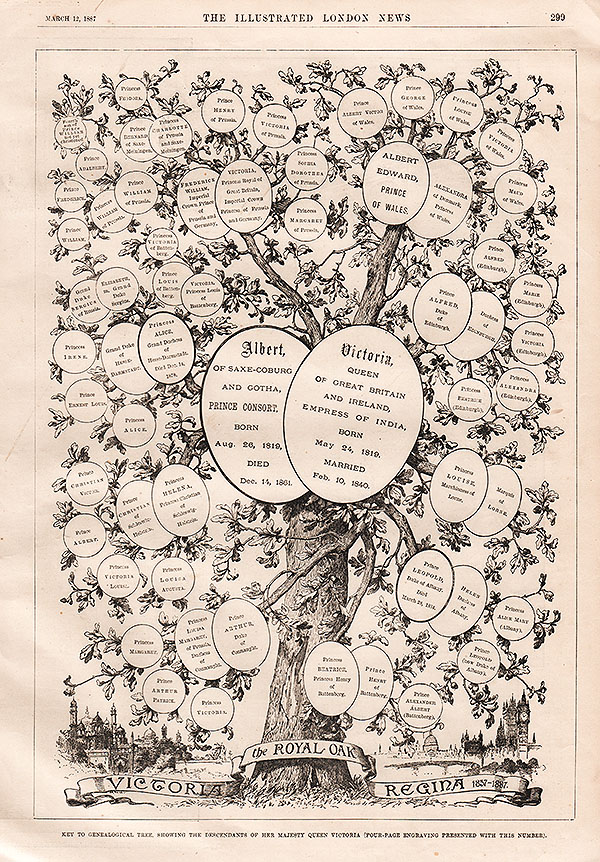 MARCH 12, 1887
THE ILLUSTRATED LONDON NEWS
299
Princess
FEODORA.
Prince
HENRY
of Prussia.
Princess
VICTORIA
of Prussia.
Prince
ALBERT VICTOR
of Wales.
Prince
GEORGE
of Wales.
Princess
LOUISE
of Wales.
Princess
VICTORIA
of Wales.
Prince
BERNARD
of Saxe-
Meiningen.
Princess
CHARLOTTE
of Prussia
and Saxe-
Meiningen.
Prince
ADALBERT.
Prince
WILLIAM
of Prussia.
Princess
VICTORIA
of Prussia.
Prince
FREDERICK.
Prince
WILLIAM.
FREDERICK
WILLIAM,
Imperial
Crown Prince
of
Prussia and
Germany.
VICTORIA,
Princess Royal of
Great Britain,
Imperial
Crown
Princess of Prussia
and Germany.
Princess
SOPHIA
DOROTHEA
of Prussia.
Princess
MARGARET
of Prussia.
ALBERT
EDWARD,
PRINCE
OF WALES.
ALEXANDRA
of Denmark,
Princess
of
Wales.
Princess
MAUD
of Wales.
Princess
VICTORIA
of Batten-
berg.
Prince
LOUIS
of Batten-
berg.
VICTORIA,
Princess Louis
of
Battenberg.
Grand
Duke
SERGIUS
of Russia.
ELIZABETH,
Grand
Duke
Sergius.
Prince
ALFRED
(Edinburgh).
Princess
MARIE
(Edinburgh).
Princess
VICTORIA
(Edinburgh).
Princess
ALEXANDRA
(Edinburgh).
Princess
BEATRICE
(Edinburgh).
Prince
ALFRED,
Duke
of
Edinburgh.
Duchess
of
EDINBURGH.
Princess
IRENE.
Grand Duke
of
HESSE-
DARMSTADT.
Princess
ALICE,
Grand Duchess
of
Hesse-Darmstadt.
Died Dec. 14,
1878.
Prince
ERNEST LOUIS.
Princess
ALICE.
Albert,
OF SAXE-COBURG
AND GOTHA,
PRINCE CONSORT.
BORN
Aug. 26, 1819.
DIED
Dec. 14, 1861.
Victoria,
QUEEN
OF GREAT BRITAIN
AND IRELAND,
EMPRESS OF INDIA,
BORN
May 24, 1819.
MARRIED
Feb. 10, 1840.
Prince
CHRISTIAN
Victor.
Prince
CHRISTIAN
of
Schleswig-
Holstein.
Princess
HELENA,
Princess Christian
of
Schleswig-
Holstein.
Prince
ALBERT.
Princess
VICTORIA
Louise.
Princess
LOUISA
AUGUSTA.
Princess
LOUISE,
Marchioness of
Lorne.
Marquis
of
LORNE.
Prince
LEOPOLD,
Duke of Albany.
Died
March 28, 1884.
HELEN
Duchess
of
Albany.
Princess
ALICE MARY
(Albany).
Prince
LEOPOLD
(now Duke of
Albany).
Princess
MARGARET.
Princess
LOUISA
MARGARET,
of Prussia,
Duchess
of
Connaught.
Prince
ARTHUR,
Duke
of
Connaught.
Prince
ARTHUR
PATRICK.
Princess
VICTORIA.
Princess
BEATRICE,
Princess Henry
of
Battenberg.
Prince
HENRY
of
Battenberg.
Prince
ALEXANDER
ALBERT
(Battenberg).
the ROYAL OAK
VICTORIA REGINA 1837-1887.
KEY TO GENEALOGICAL TREE, SHOWING THE DESCENDANTS OF HER MAJESTY QUEEN VICTORIA (FOUR-PAGE ENGRAVING PRESENTED WITH THIS NUMBER).